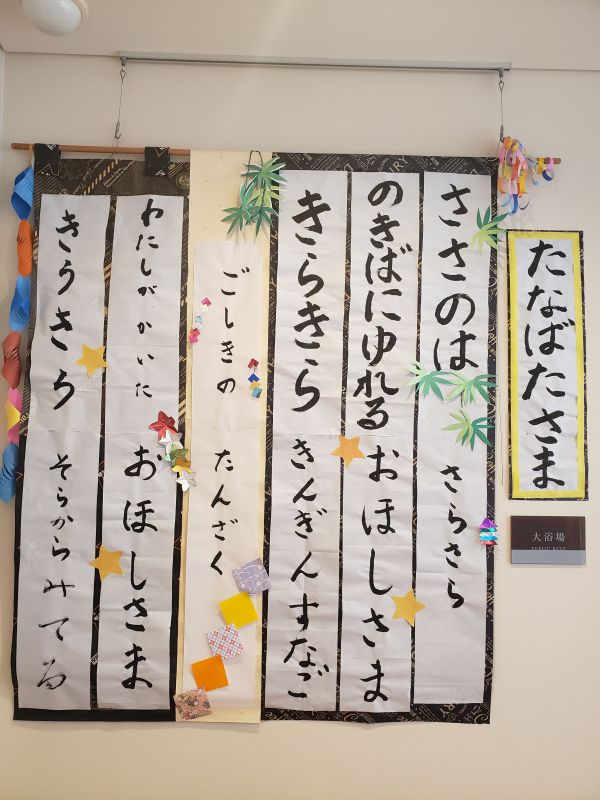 たなばたさま
ささのは さらさら
のきばにゆれる おほしさま
きらきら きんぎんすなご
ごしきの たんざく
わたしが かいた おほしさま
きらきら そらからみてる
大浴場
PUBLIC BATH